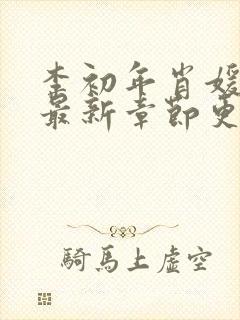 李初年肖媛
最新章節更
騎馬上虛空